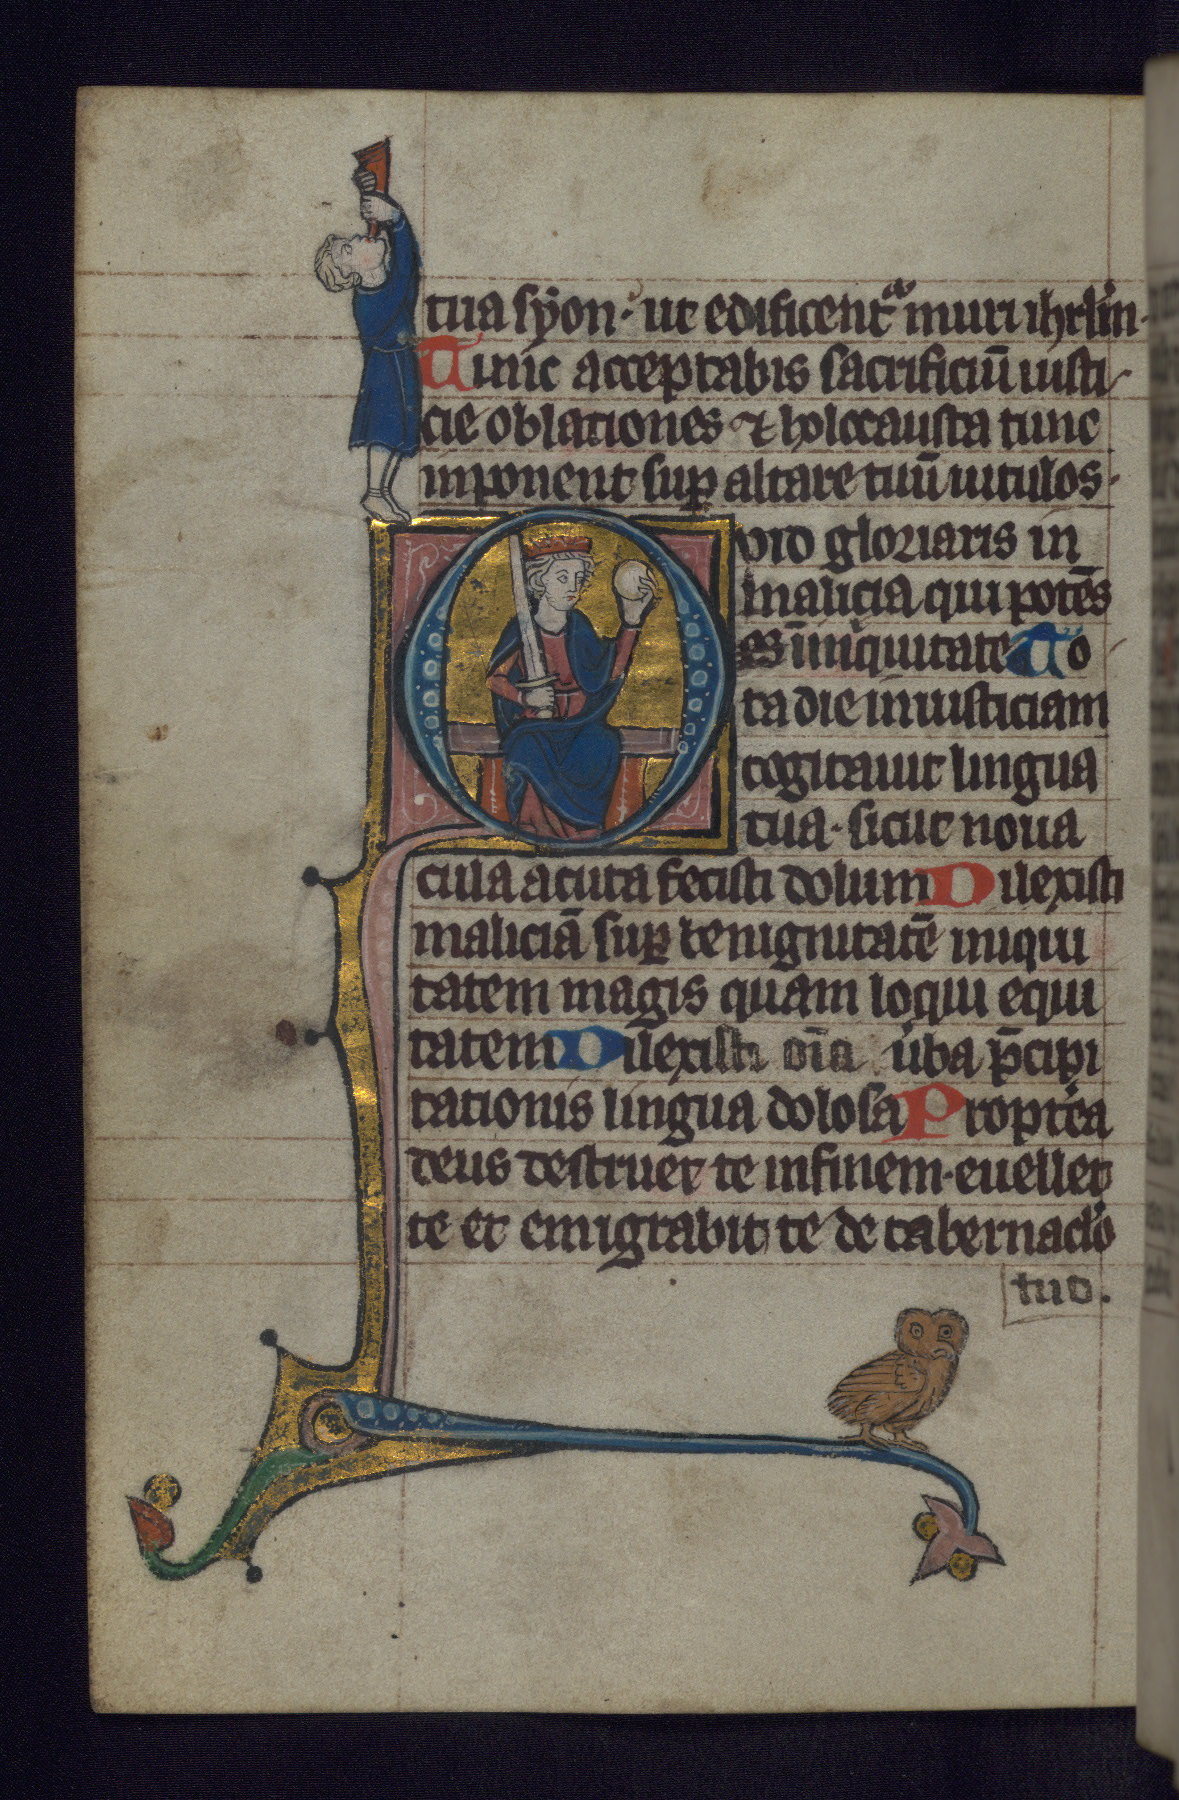 tua syon · ut edificent᷑ muri ihrl̅m ·
Tunc acceptabis sacrificiu̅ iusti
cie oblationes ⁊ holocausta tunc
inponent sup̲ altare tuu̅ uitulos ·
Quid gloriaris in
malicia qui pote̅s
es i̅niquitate To
ta die iniusticiam
cogitauit lingua
tua · sicut noua
cula acuta fecisti dolum Dilexisti
malicia̅ sup̲ benignitate̅ iniqui
tatem magis quam loqui equi
tatem Dilexisti oi̅a u̅ba p̅cipi
tationis lingua dolosa Propt̅ea
deus destruet te infinem · euellet
te et emigrabit te de tabernaclo
tuo.